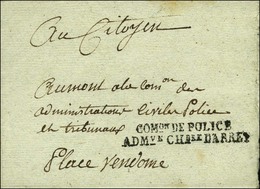 Au Citoyen
aumont a la com.on des
administrations Civiles Police
et tribunaux
COM.ON DE POLICE
ADM.VE CH.DE D'ARRET
Place vendome